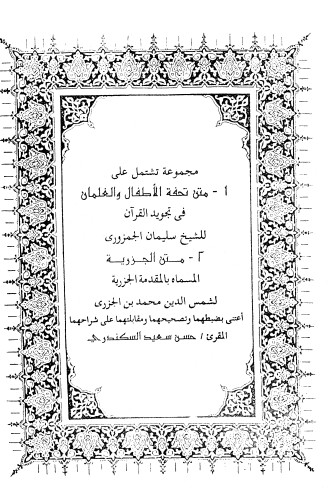 مجموعة تشتمل على
١ - متن تحفة الأطفال والغلمان
فى تجويد القرآن
للشيخ سليمان الجمزورى
٢ - متن الجزرية
المسماه بالمقدمة الجزرية
لشمس الدين محمد بن الجزرى
أعتنى بضبطهما وتصحيحهما ومقابلتهما على شراحهما
المقرئ / حسن سعيد السكندرى